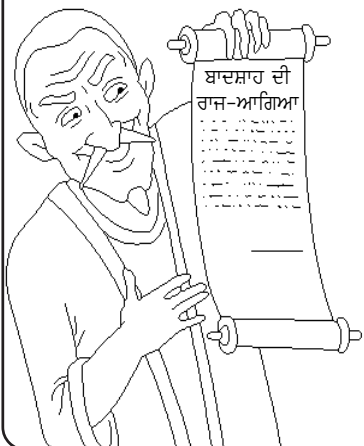 ਬਾਦਸ਼ਾਹ ਦੀ
ਰਾਜ-ਆਗਿਆ